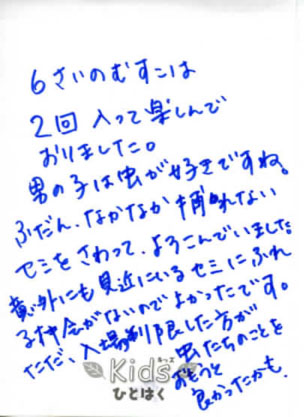 6さいのむすこは
2回入って楽しんで
おりました。
男の子は虫が好きですね。
ふだん、なかなか捕れない
セミをさわって、よろこんでいました。
意外にも身近にいるセミにふれ
る機会がないのでよかったです。
ただ、入場制限した方が
虫たちのことを
おもうと
良かったかも。
キッズ
Kids
ひとはく